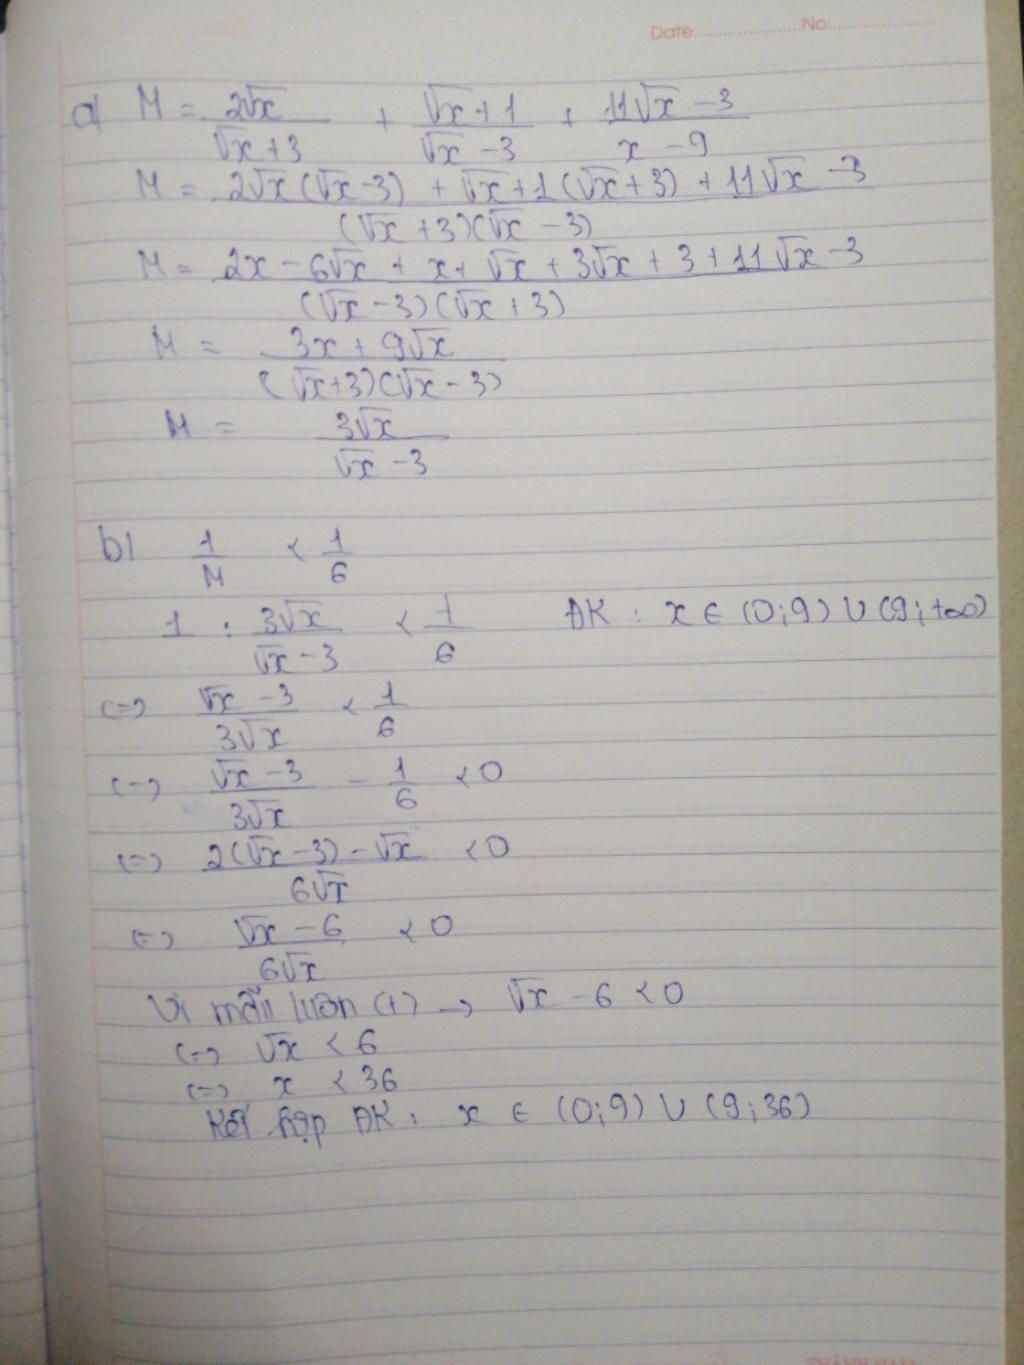 Date:....................No:....................
a) M = 2√x/(√x+3) + (√x+1)/(√x-3) + (11√x-3)/(x-9)
M = (2√x(√x-3) + √x+1(√x+3) + 11√x-3)/((√x+3)(√x-3))
M = (2x - 6√x + x + √x + 3√x + 3 + 11√x - 3)/((√x-3)(√x+3))
M = (3x + 9√x)/((√x+3)(√x-3))
M = 3√x/(√x-3)
b) 1/M < 1/6
1 : 3√x/(√x-3) < 1/6 ĐK : x ∈ (0;9) ∪ (9;+∞)
(=) (√x-3)/(3√x) < 1/6
(=) (√x-3)/(3√x) - 1/6 < 0
(=) (2(√x-3) - √x)/(6√x) < 0
(=) (√x-6)/(6√x) < 0
Vì mẫu luôn (+) → √x - 6 < 0
(=) √x < 6
(=) x < 36
Kết hợp ĐK : x ∈ (0;9) ∪ (9;36)